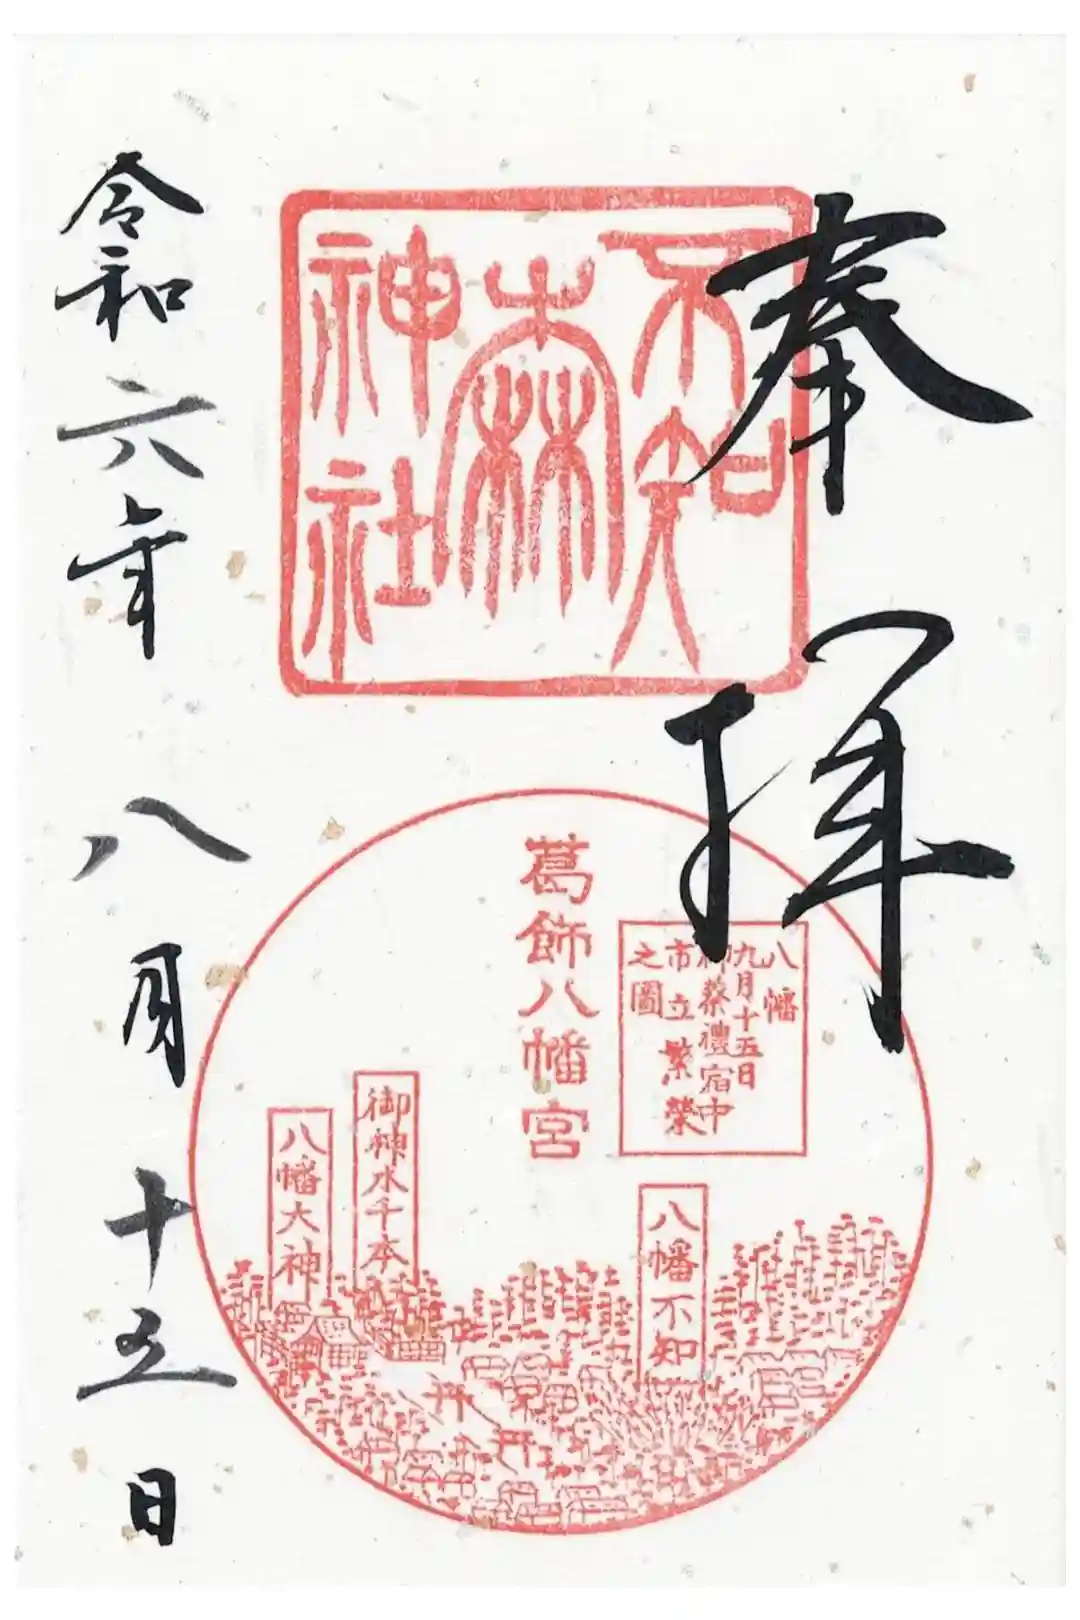 奉拝
不知
森
神社
葛飾八幡宮
八幡
九月十五日
御祭禮宿中
市立繁榮
之圖
八幡不知
御神水千本
八幡大神
令和六年八月十五日